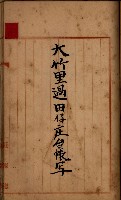 大竹里過田仔庄台帳写